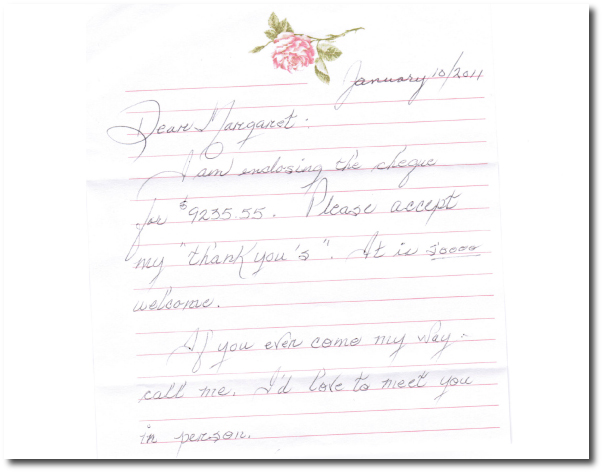 January 10/2011
Dear Margaret.
I am enclosing the cheque
for $9235.55. Please accept
my "thank you's". It is soooo
welcome.
If you ever come my way -
call me. I'd love to meet you
in person.